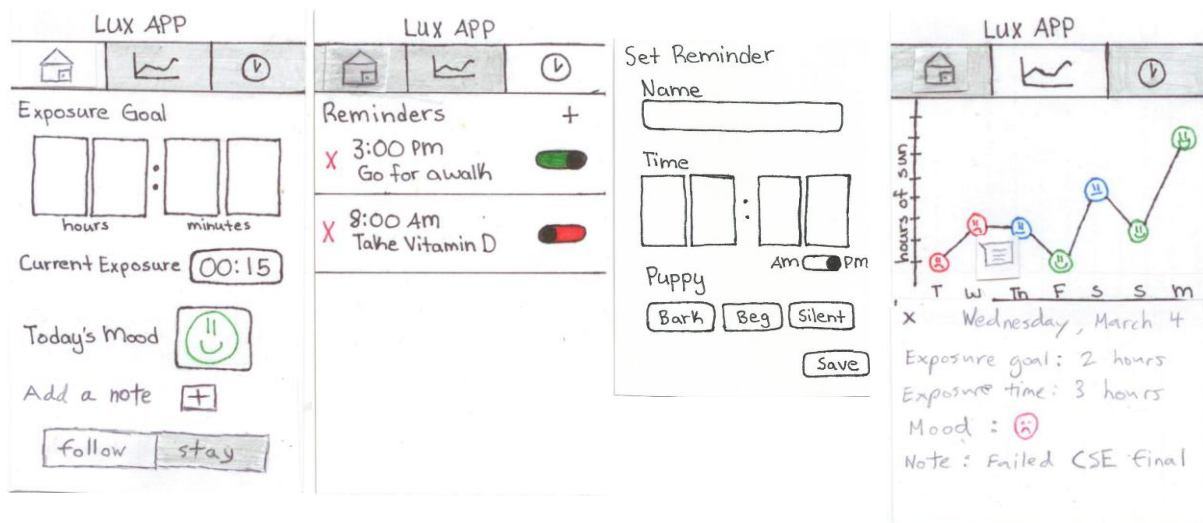 LUX APP
Exposure Goal
:
hours minutes
Current Exposure 00:15
Today's Mood
Add a note +
follow stay
LUX APP
Reminders +
X 3:00 Pm
Go for a walk
X 8:00 Am
Take Vitamin D
Set Reminder
Name
Time
:
Am Pm
Puppy
Bark Beg Silent
Save
LUX APP
hours of sun
T W Th F S S M
x Wednesday, March 4
Exposure goal: 2 hours
Exposure time: 3 hours
Mood :
Note : Failed CSE final